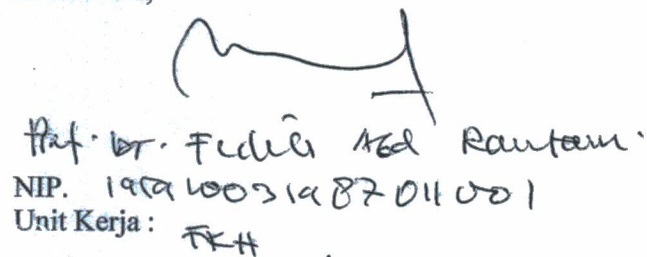 Prof. Dr. Fedik Abd Rantam.
NIP. 195910031987011001
Unit Kerja : FKH